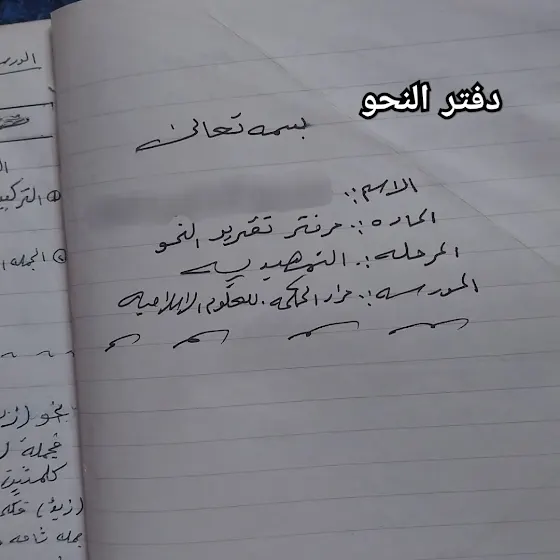 دفتر النحو
بسمه تعالى
الاسم :.
الماده :. دفتر تقرير النحو
المرحله :. التمهيديه
المدرسه :. دار الحكمه للعلوم الاسلاميه
الدرس
① التركيب
② الجمله ا
نحو (زيد
فجملة
كلمتين
(زيدٌ)